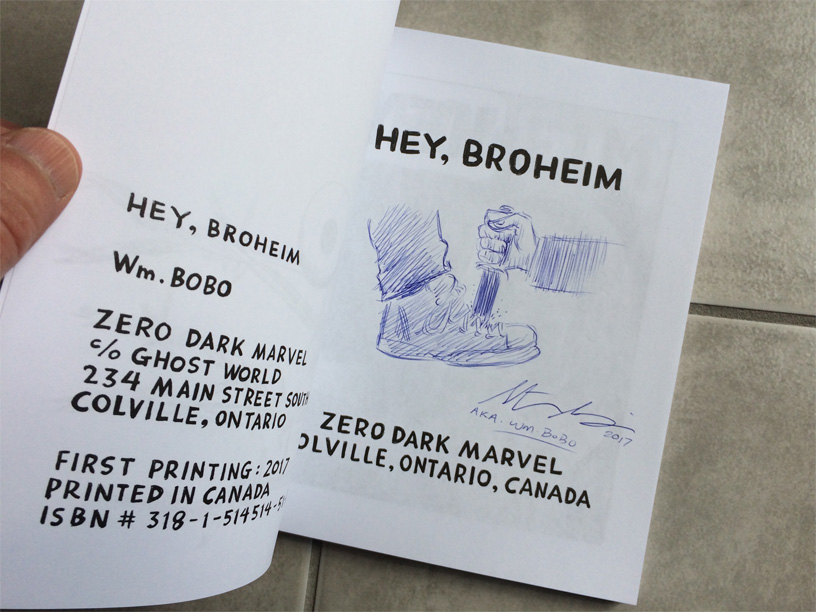 HEY, BROHEIM
Wm. BOBO
ZERO DARK MARVEL
c/o GHOST WORLD
234 MAIN STREET SOUTH
COLVILLE, ONTARIO
FIRST PRINTING: 2017
PRINTED IN CANADA
ISBN # 318-1-514514-5
HEY, BROHEIM
AKA. WM. BOBO
2017
ZERO DARK MARVEL
COLVILLE, ONTARIO, CANADA